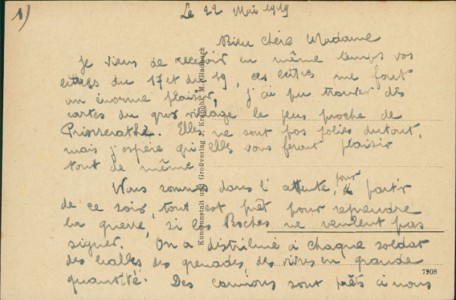 1)
Le 22 Mai 1919
Bien chère Madame
Je viens de recevoir en même temps vos
lettres du 17 et du 19, ces lettres me font
un énorme plaisir, j'ai pu trouver des
cartes du gros village le plus proche de
Elles ne sont pas jolies du tout,
mais j'espère qu'elles vous feront plaisir
tout de même.
Nous sommes dans l'attente, pour partir
de ce soir, tout est prêt pour reprendre
la guerre, si les Boches ne veulent pas
signer. On a distribué à chaque soldat
des balles des grenades, des vivres en grande
quantité. Des camions sont prêts à nous
Kunstanstalt und Großverlag
7908